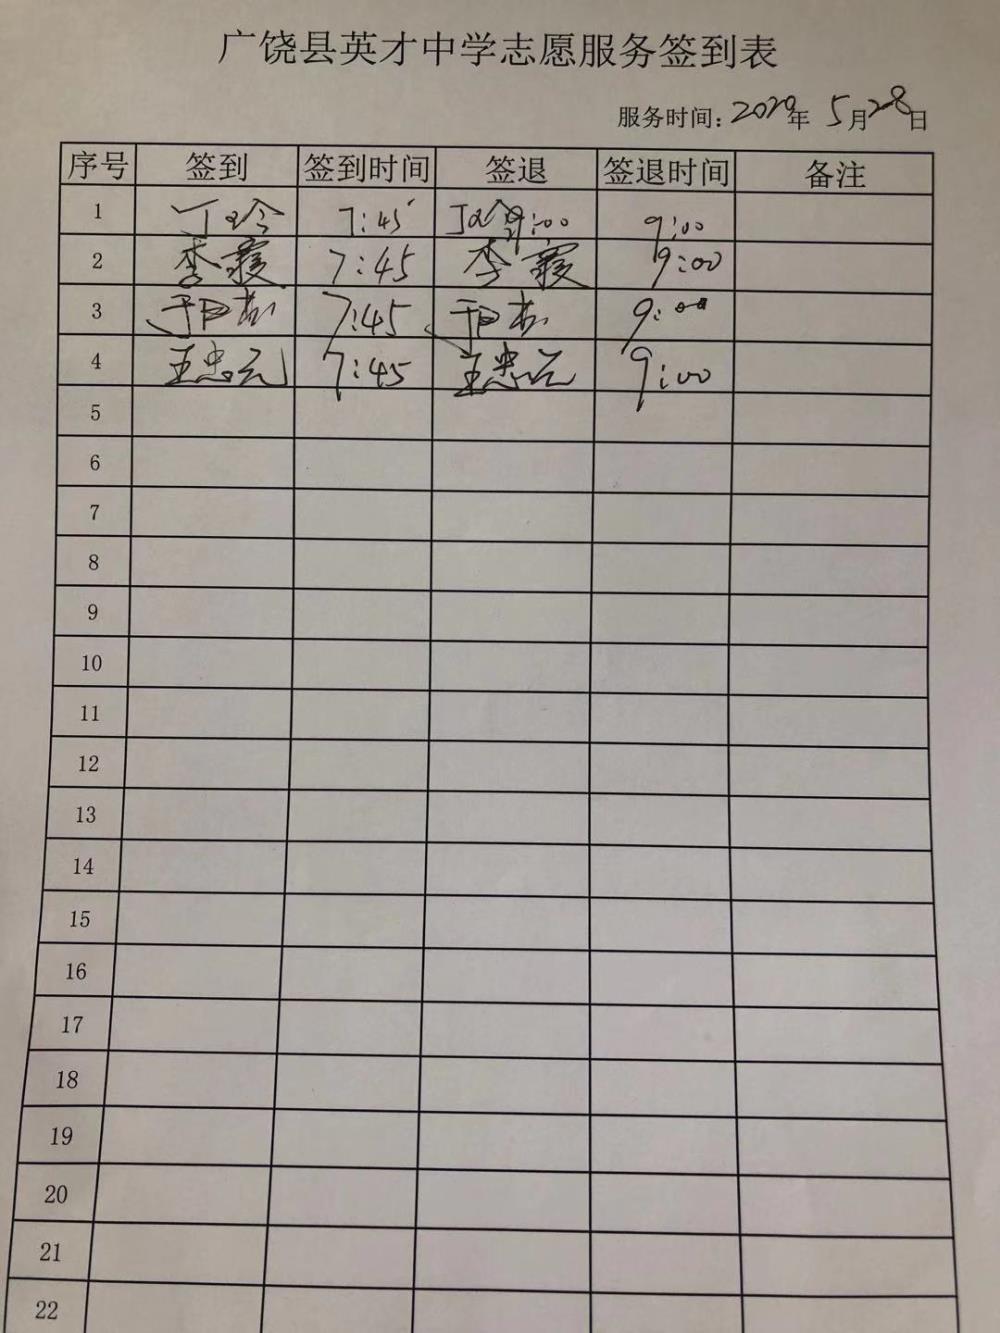 广饶县英才中学志愿服务签到表
服务时间：2020年 5月28日
序号 签到 签到时间 签退 签退时间 备注
1 丁玲 7:45 丁玲 9:00 9:00
2 李霞 7:45 李霞 9:00
3 7:45 9:00
4 王忠元 7:45 王忠元 9:00
5
6
7
8
9
10
11
12
13
14
15
16
17
18
19
20
21
22